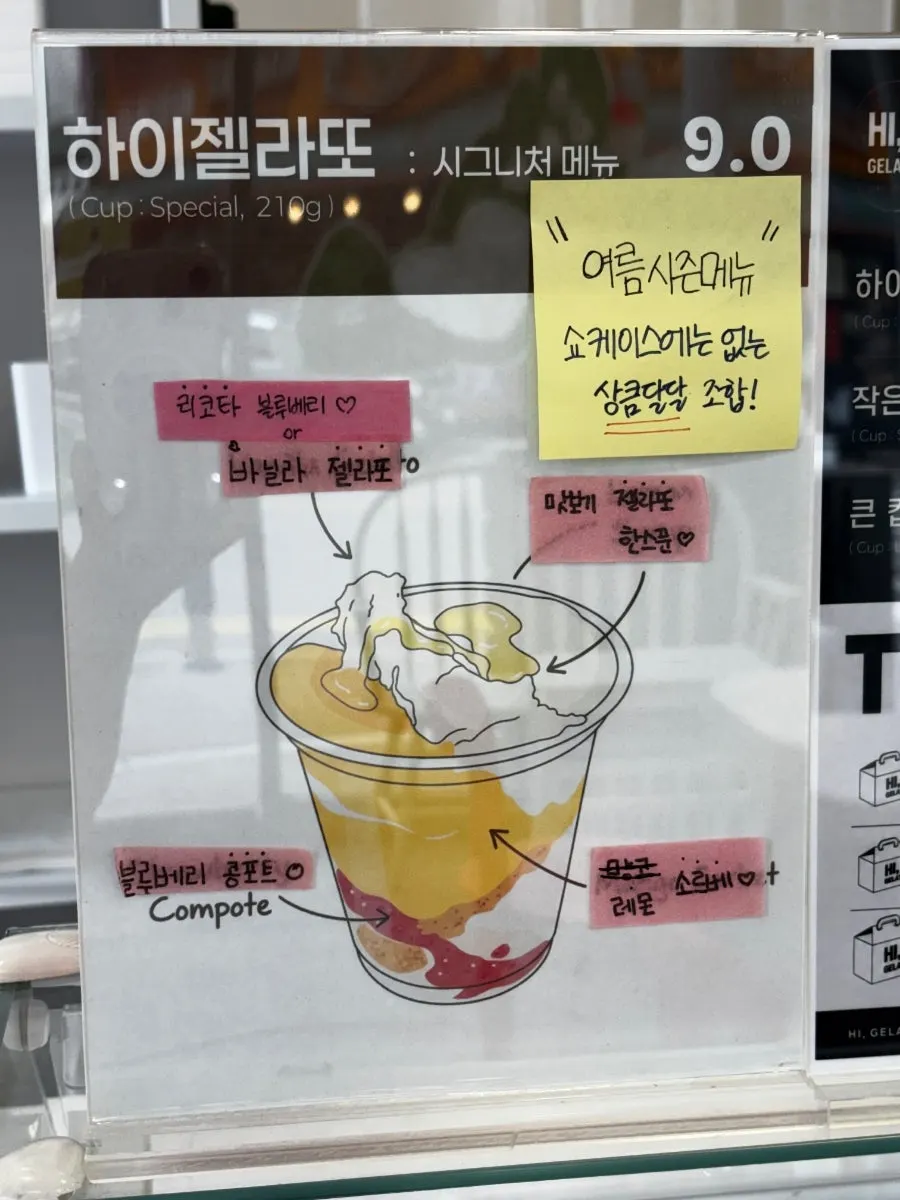 하이젤라또 : 시그니처 메뉴 9.0
(Cup : Special, 210g)
" 여름시즌메뉴 "
쇼케이스에는 없는
상큼달달 조합!
리코타 블루베리 ♡
or
바닐라 젤라또
맛보기 젤라또
한스푼 ♡
블루베리 콩포트
Compote
망고 소르베 ♡
레몬
HI,
GELA
하이
(Cup :
작은
(Cup : S
큰 컵
(Cup
T
HI,
GELA
HI,
GELA
HI,
GELA
HI, GELA